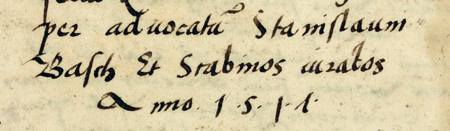 per advocatū Stanislaum
Basch Et Scabinos iuratos
Anno · 1 · 5 · 1 · 1 ·